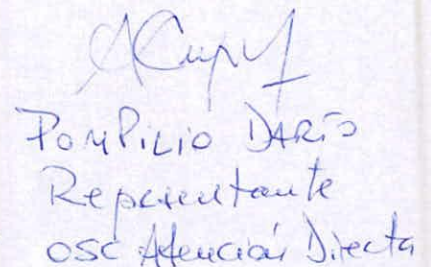 POMPILIO DARÍO
Representante
OSC Atención Directa